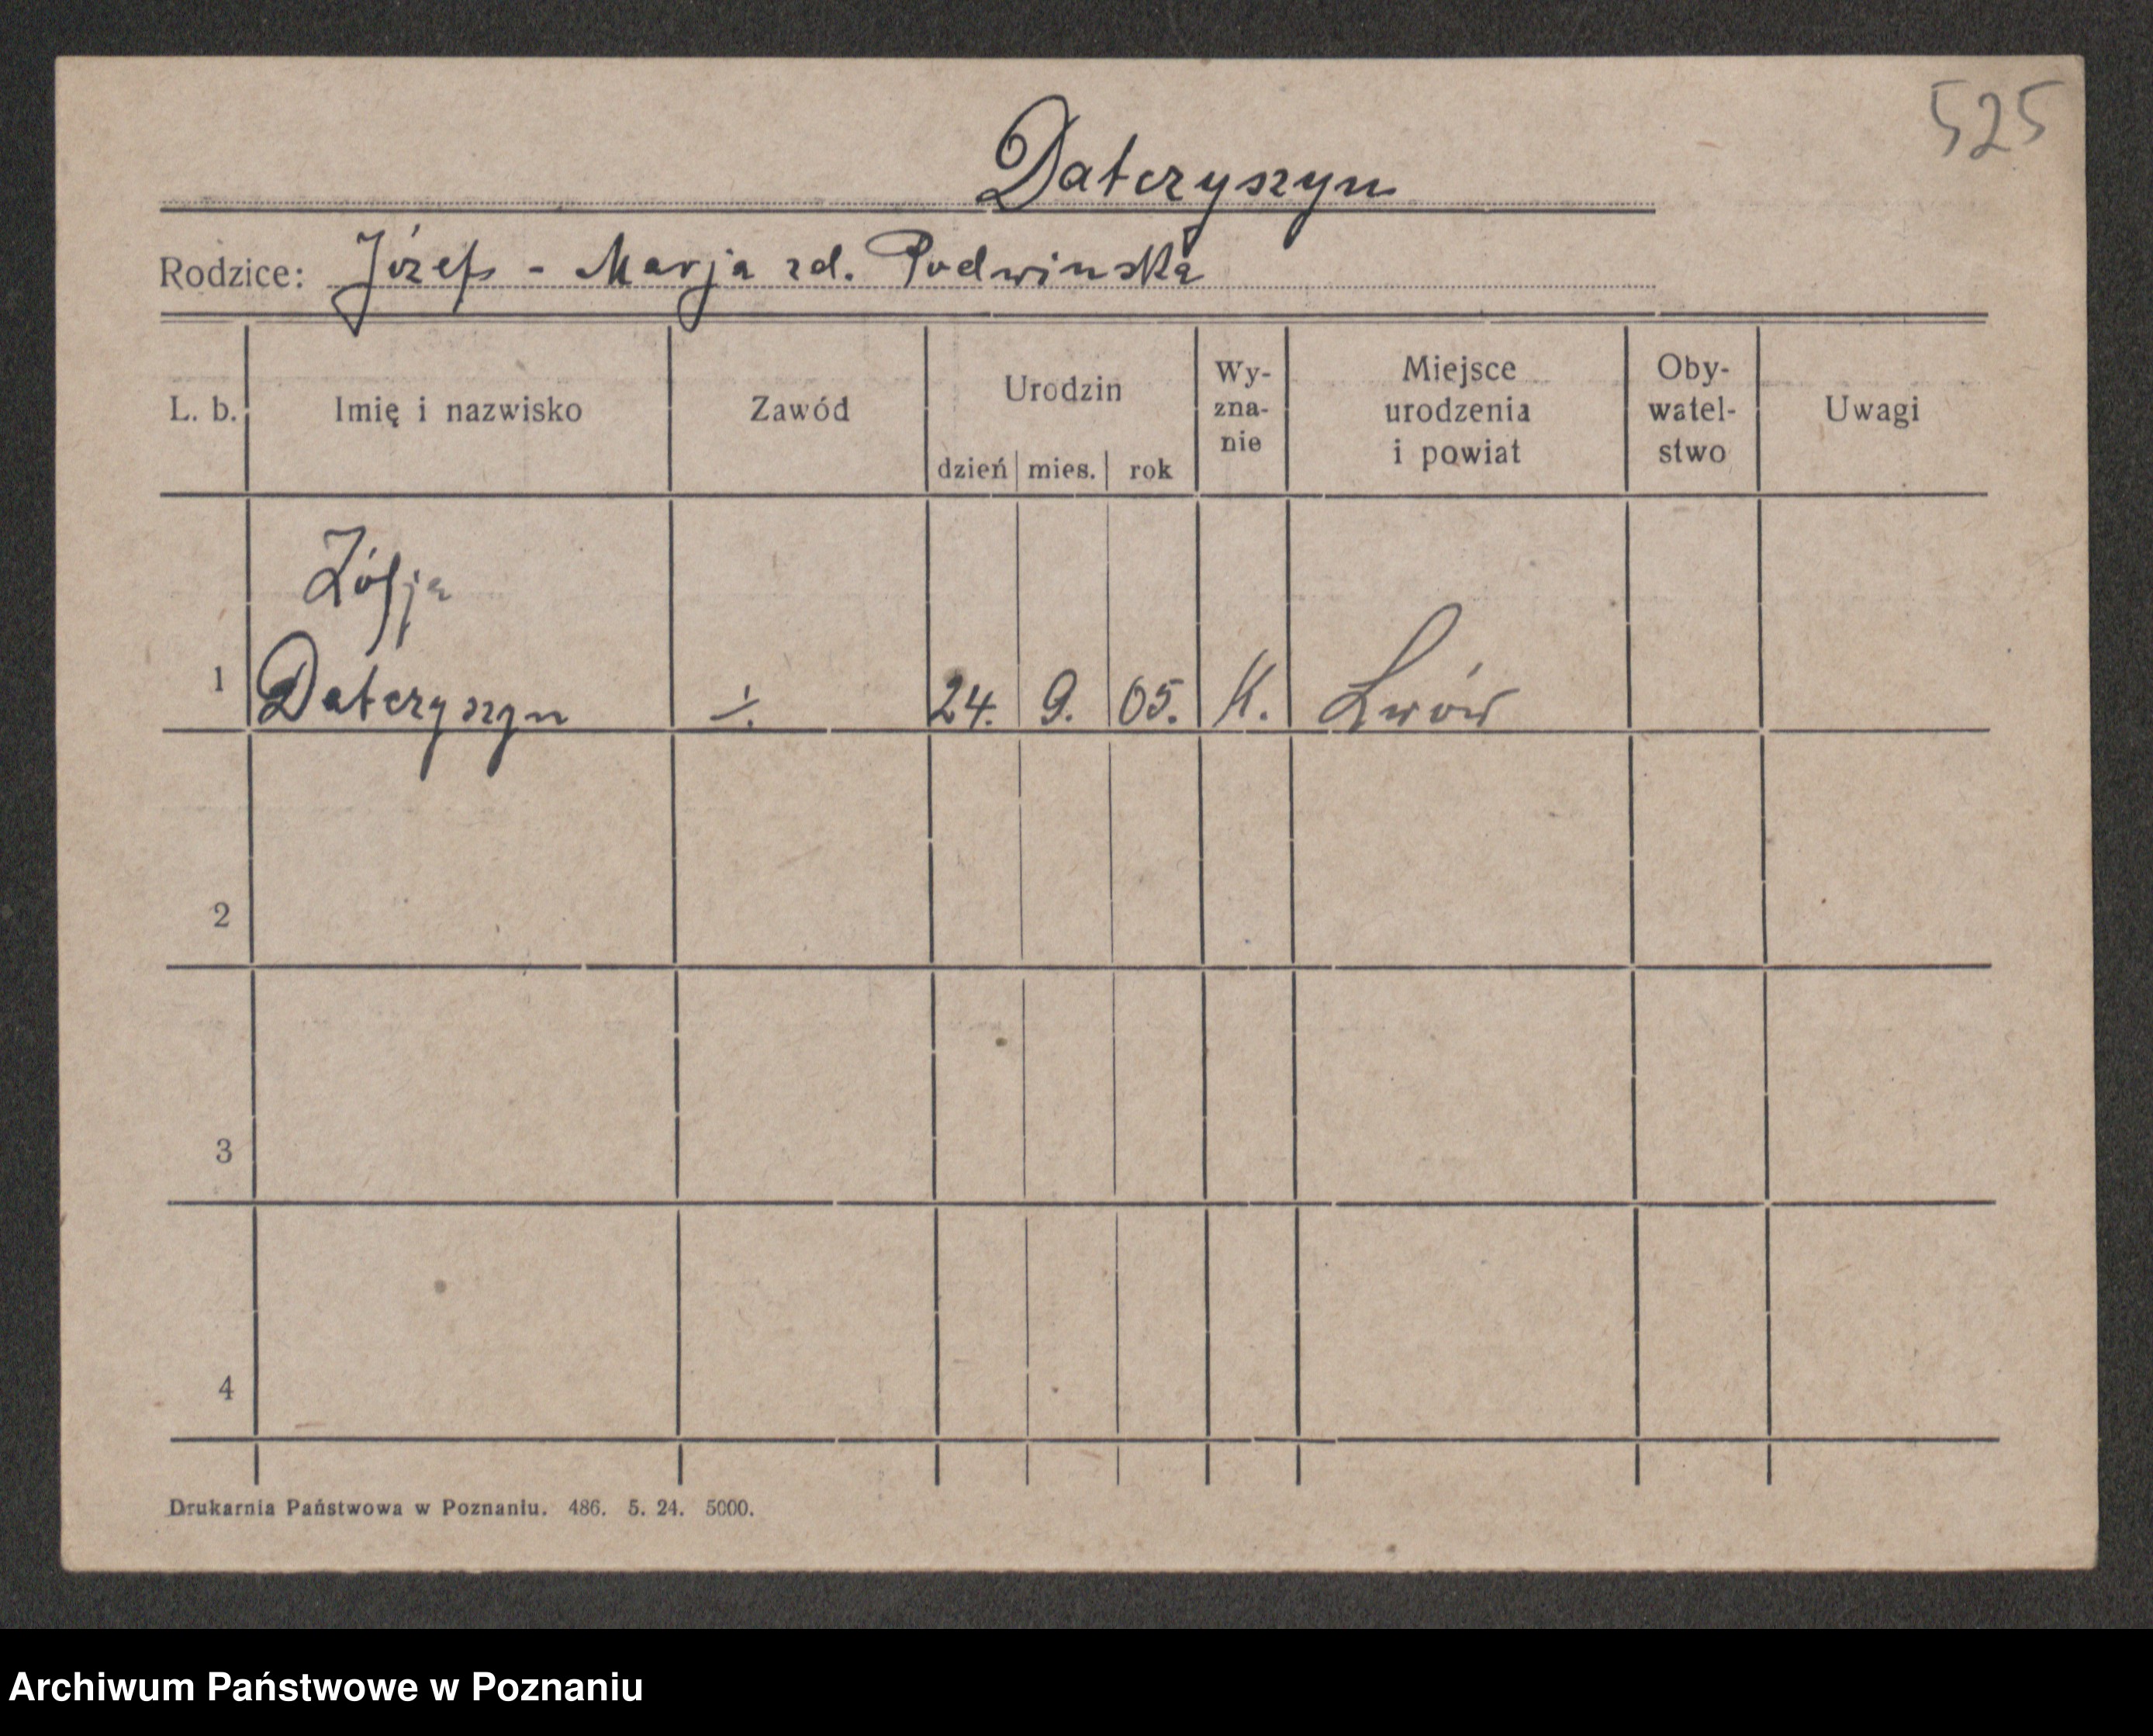 525
Dateryszyn
Rodzice: Józef - Marja zd. Podwinska
L. b. Imię i nazwisko Zawód Urodzin dzień mies. rok Wy-zna-nie Miejsce urodzenia i powiat Oby-watel-stwo Uwagi
Zófja
1 Dateryszyn ÷ 24. 9. 05. K. Lwów
2
3
4
Drukarnia Państwowa w Poznaniu. 486. 5. 24. 5000.
Archiwum Państwowe w Poznaniu